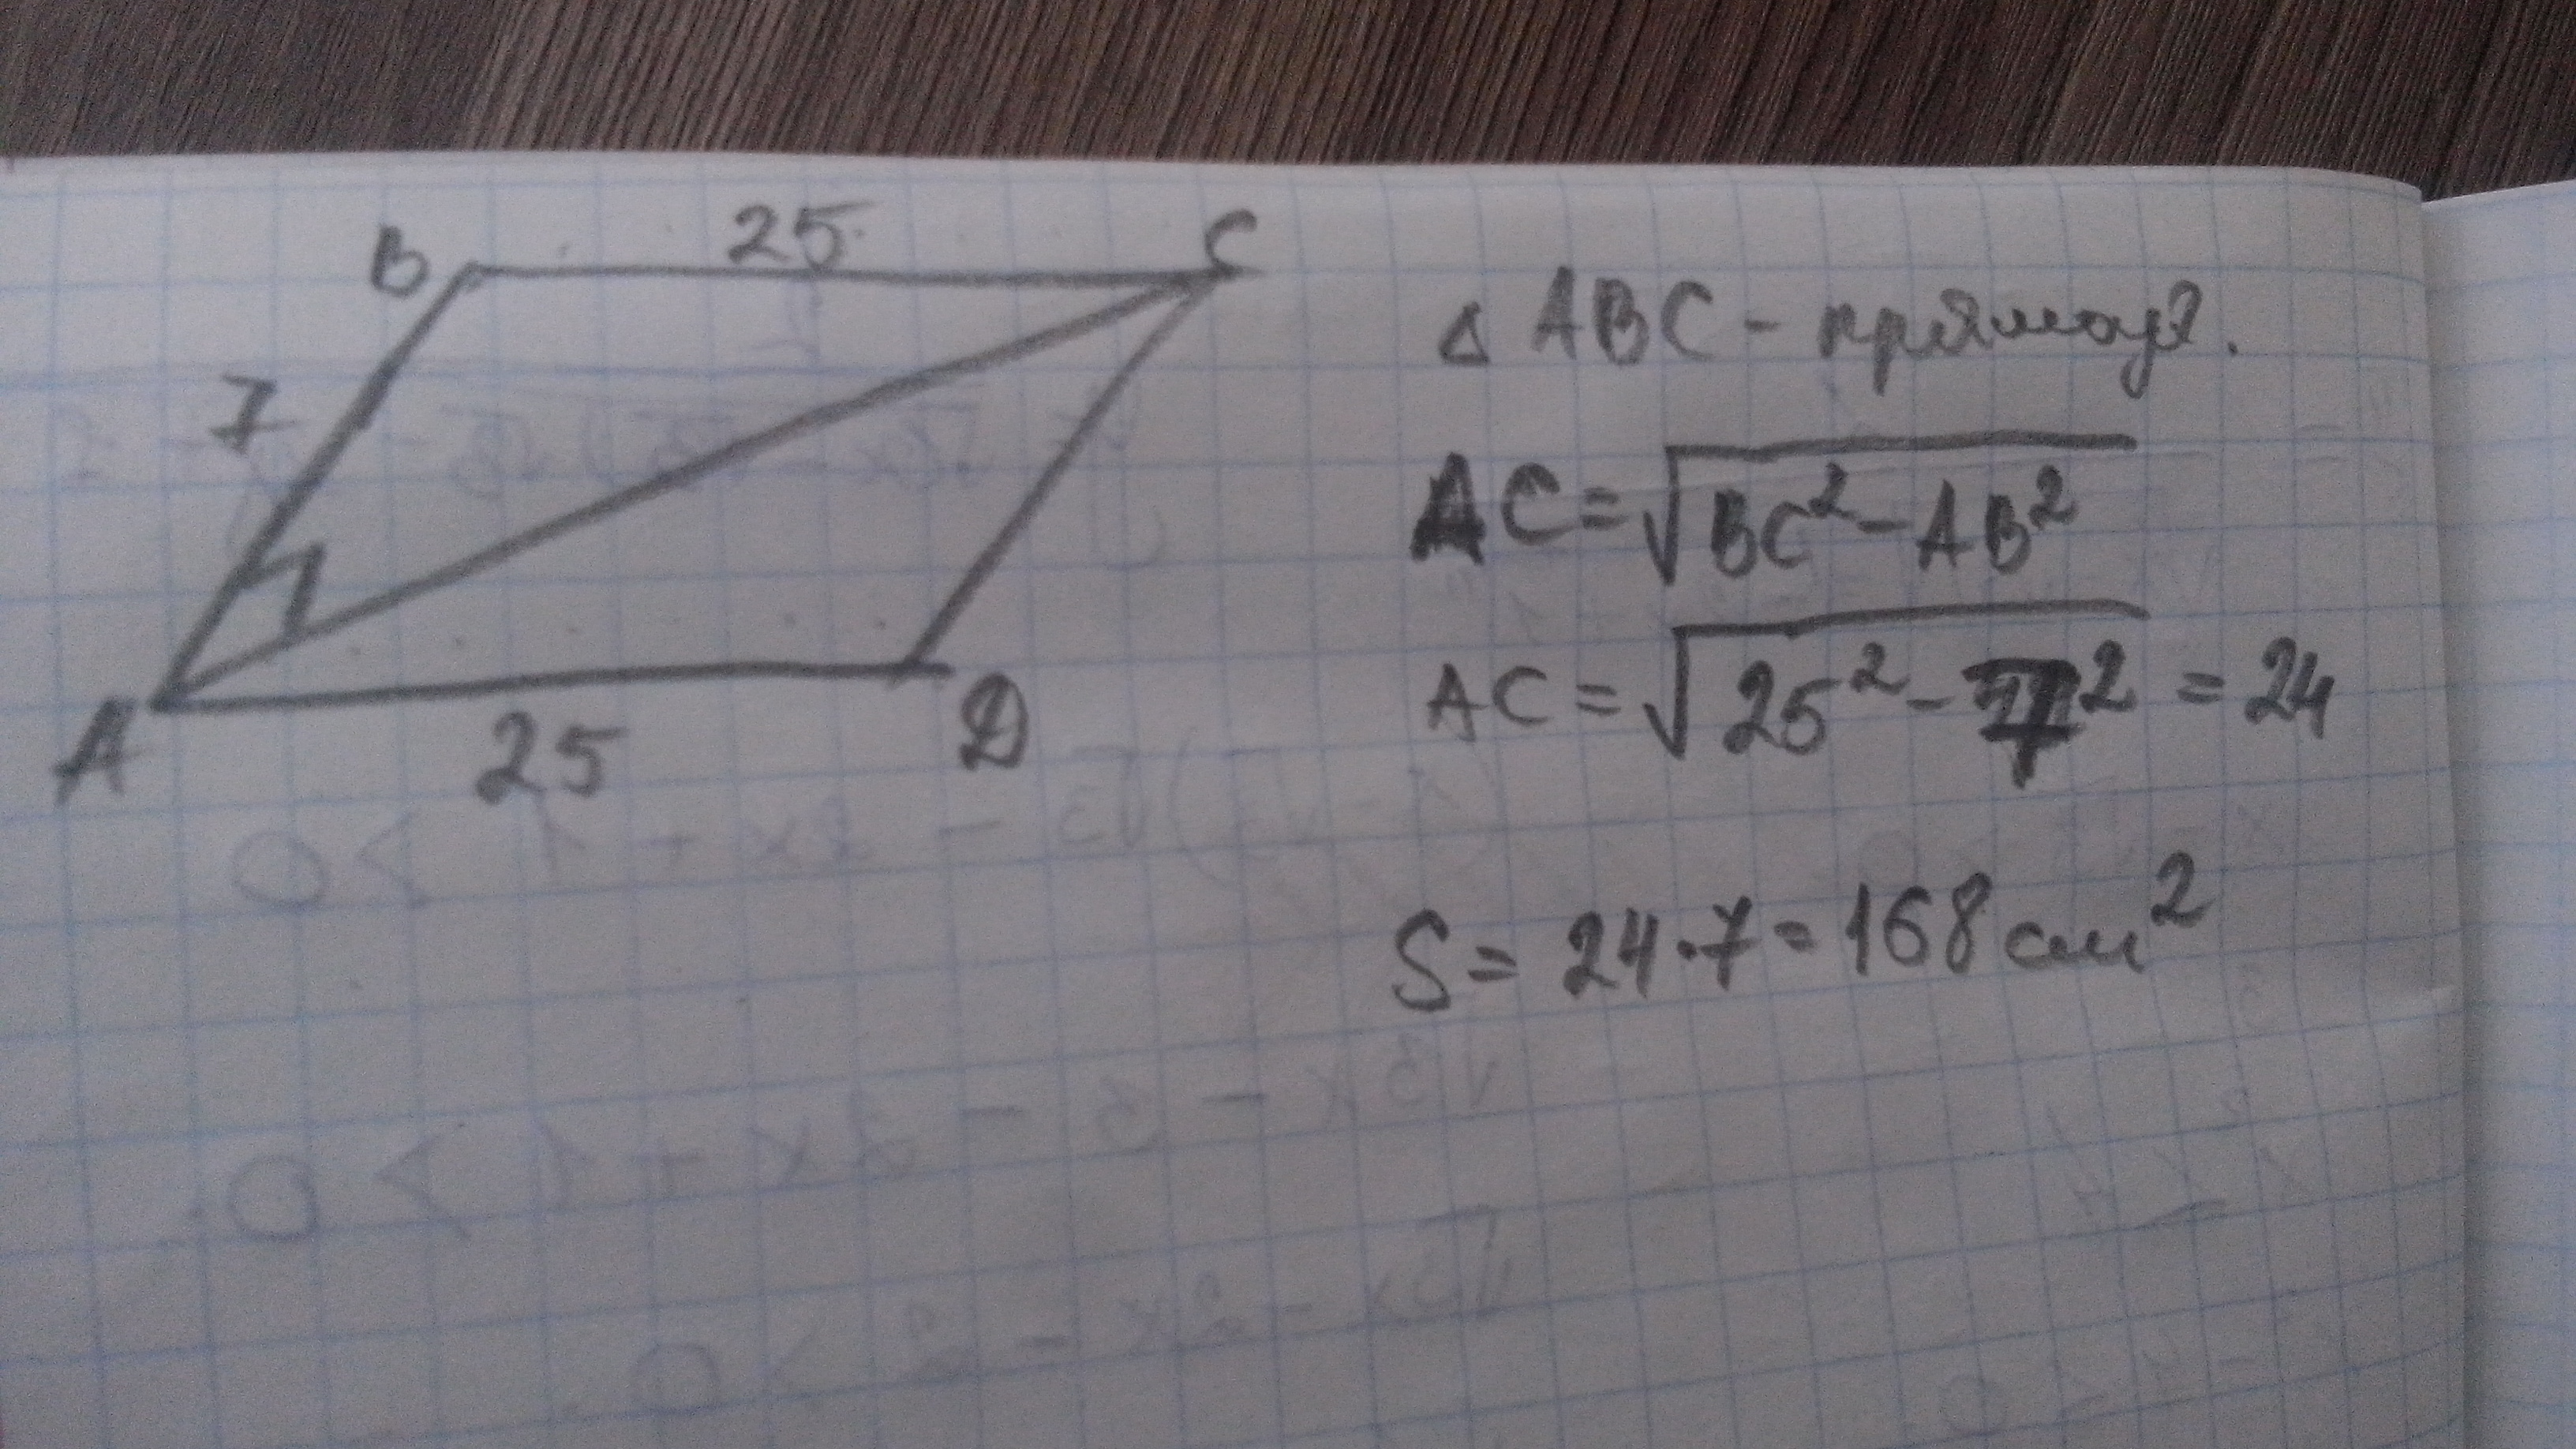 B 25 C
7
A 25 D
△ ABC - прямоуг.
AC = √BC² - AB²
AC = √25² - 7² = 24
S = 24 · 7 = 168 см²